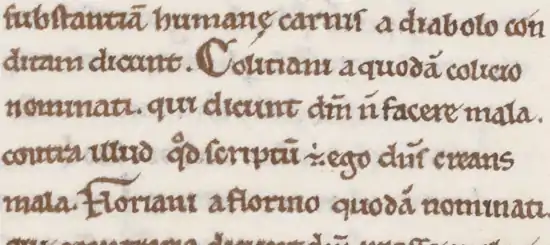 substantiā humanę carnis a diabolo con
ditam dicunt. Colitiani a quodā colicio
nominati. qui dicunt dm̄ n̄ facere mala.
contra illud qd̓ scriptū ÷ ego dn̄s creans
mala. Floriani a florino quodā nominati.